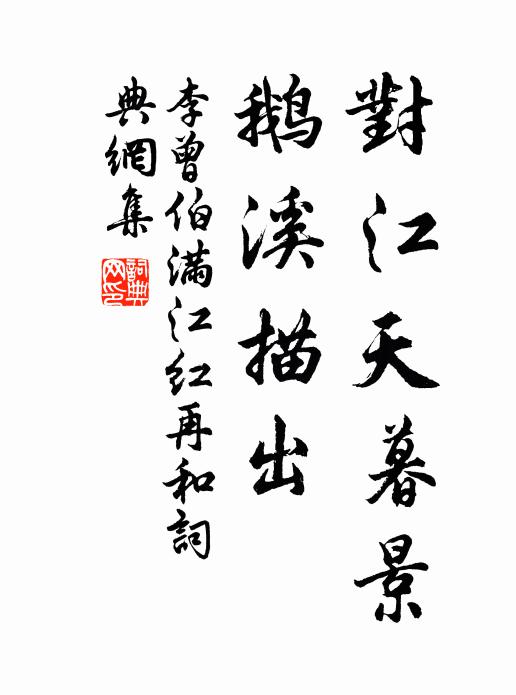 對江天暮景
鵝溪描出
李曾伯滿江红再和詞
典網集
詞典
网印